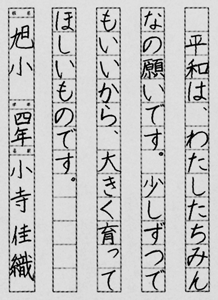 平和は、わたしたちみん
なの願いです。少しずつで
もいいから、大きく育って
ほしいものです。
旭小 四年 小寺佳織